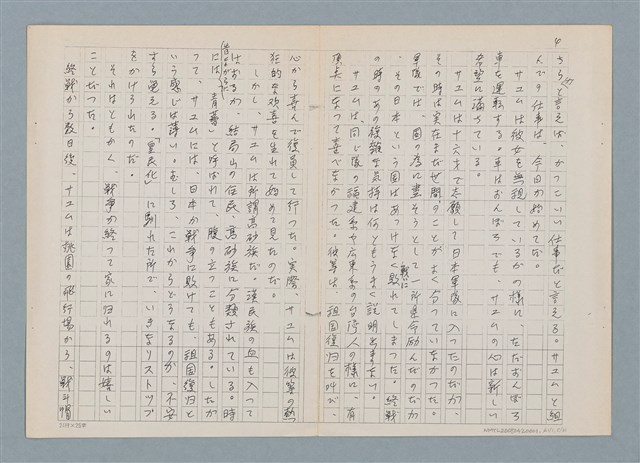 4
さらに言えば、かっこいい仕事だと言える。サユムと組
んでの仕事は、今日が始めてだ。
サユムは彼女を無視しているかの様に、ただおんぼろ
車を運転する。車はおんぼろでも、サユムの心は新しい
希望に満ちている。
サユムは十六才で志願して日本軍隊に入ったのだが、
その時は実在まだ世間のことがよく分っていなかった。
軍隊では、国の為に尽そうとして一所懸命励んだのだが
、その日本という国はあっけなく戦に敗れてしまった。終戦
の時のあの複雑な気持は何ともうまく説明出来ない。
サユムは、同じ隊の福建系や広東系の台湾人の様に、有
頂天になって喜べなかった。彼等は、祖国復帰を叫び、
心から喜んで復員して行った。実際、サユムは彼等の熱
狂的な歓喜を生れて始めて見たのだ。
しかし、サユムは所謂高砂族だ。漢民族の血も入って
はおるが、結局山の住民、高砂族に分類されている。時
には、昔ながらに「青蕃」と呼ばれて、腹の立つこともある。したが
って、サユムには、日本が戦争に敗けても、祖国復帰と
いう感じは薄い。むしろ、これからどうなるのか、不安
すら覚える。「皇民化」に馴れた所で、いきなりストップ
をかけられたのだ。
それはともかく、戦争が終って家に帰れるのは嬉しい
ことだった。
終戦から数日後、サユムは桃園の飛行場から、戦斗帽